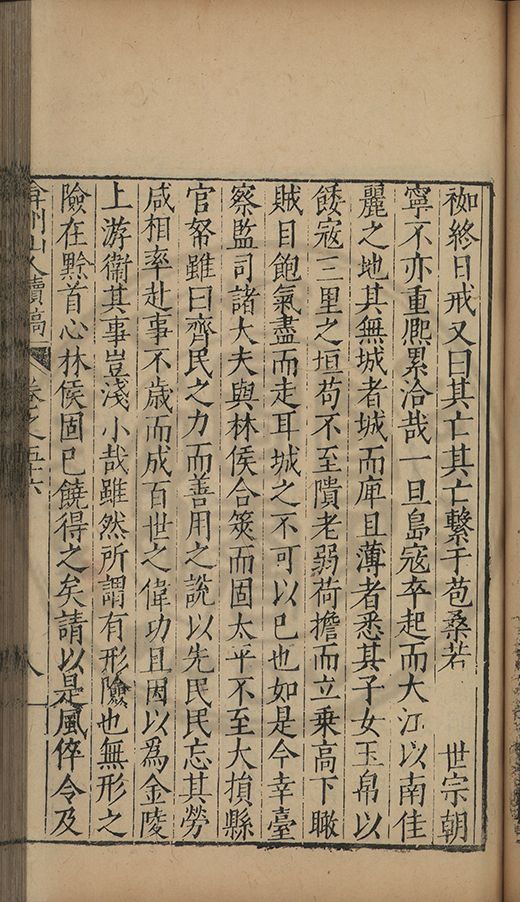 袽終日戒又曰其亡其亡繫于苞桑若　世宗朝
寧不亦重熈累洽哉一旦島寇卒起而大江以南佳
麗之地其無城者城而庳且薄者悉其子女玉帛以
餧寇三里之垣苟不至隤老弱荷擔而立乗高下瞰
賊目飽氣盡而走耳城之不可以已也如是今幸臺
察監司諸大夫與林侯合筴而固太平不至大損縣
官帑雖曰齊民之力而善用之說以先民民忘其勞
咸相率赴事不歲而成百世之偉功且因以爲金陵
上游衞其事豈淺小哉雖然所謂有形險也無形之
險在黔首心林侯固已饒得之矣請以是風倅令及
弇州山人續稿　卷之五十六　八